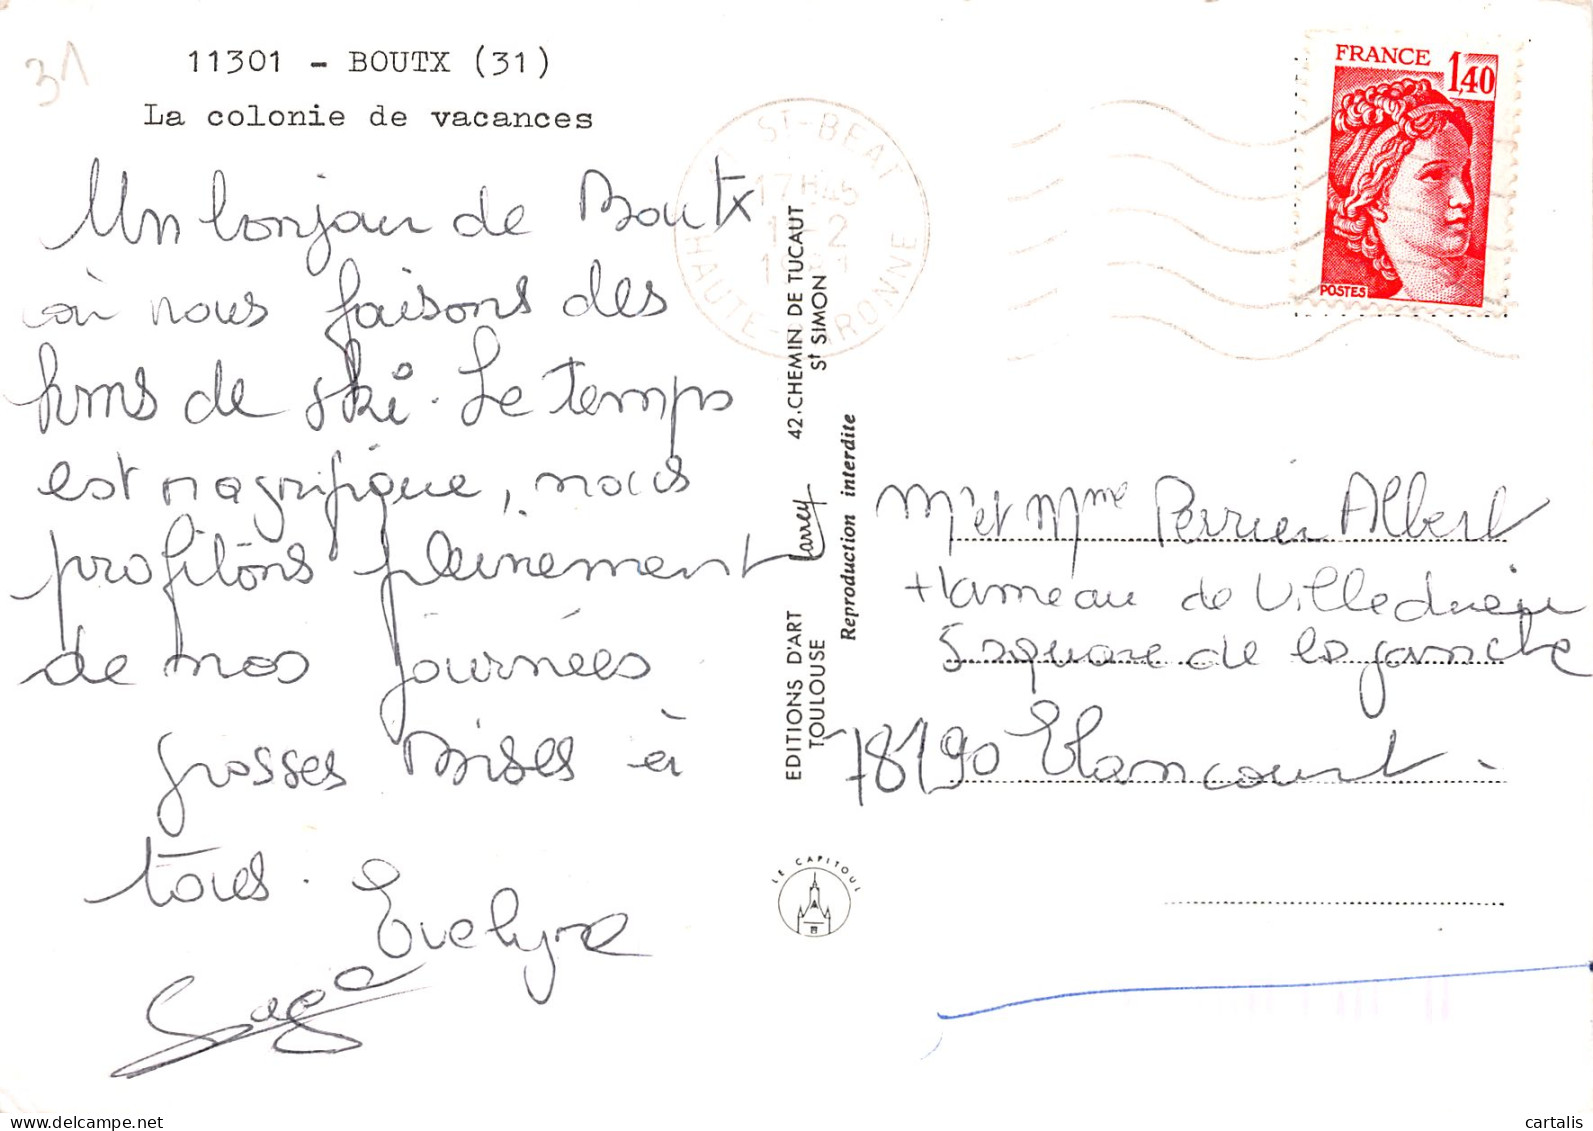 31
11301 - BOUTX (31)
La colonie de vacances
Un bonjour de Boutx
où nous faisons des
kms de ski. Le temps
est magnifique, nous
profitons pleinement
de nos journées
grosses Bises à
tous.
Evelyne
ST-BEAT
17H45
HAUTE-GARONNE
EDITIONS D'ART Larrey 42.CHEMIN DE TUCAUT
TOULOUSE St SIMON
Reproduction interdite
LE CAPITOUL
FRANCE 1,40
POSTES
Mr et Mme Perrier Albert
Hameau de Villedieu
5 square de la
78190 Elancourt.
delcampe.net
cartalis